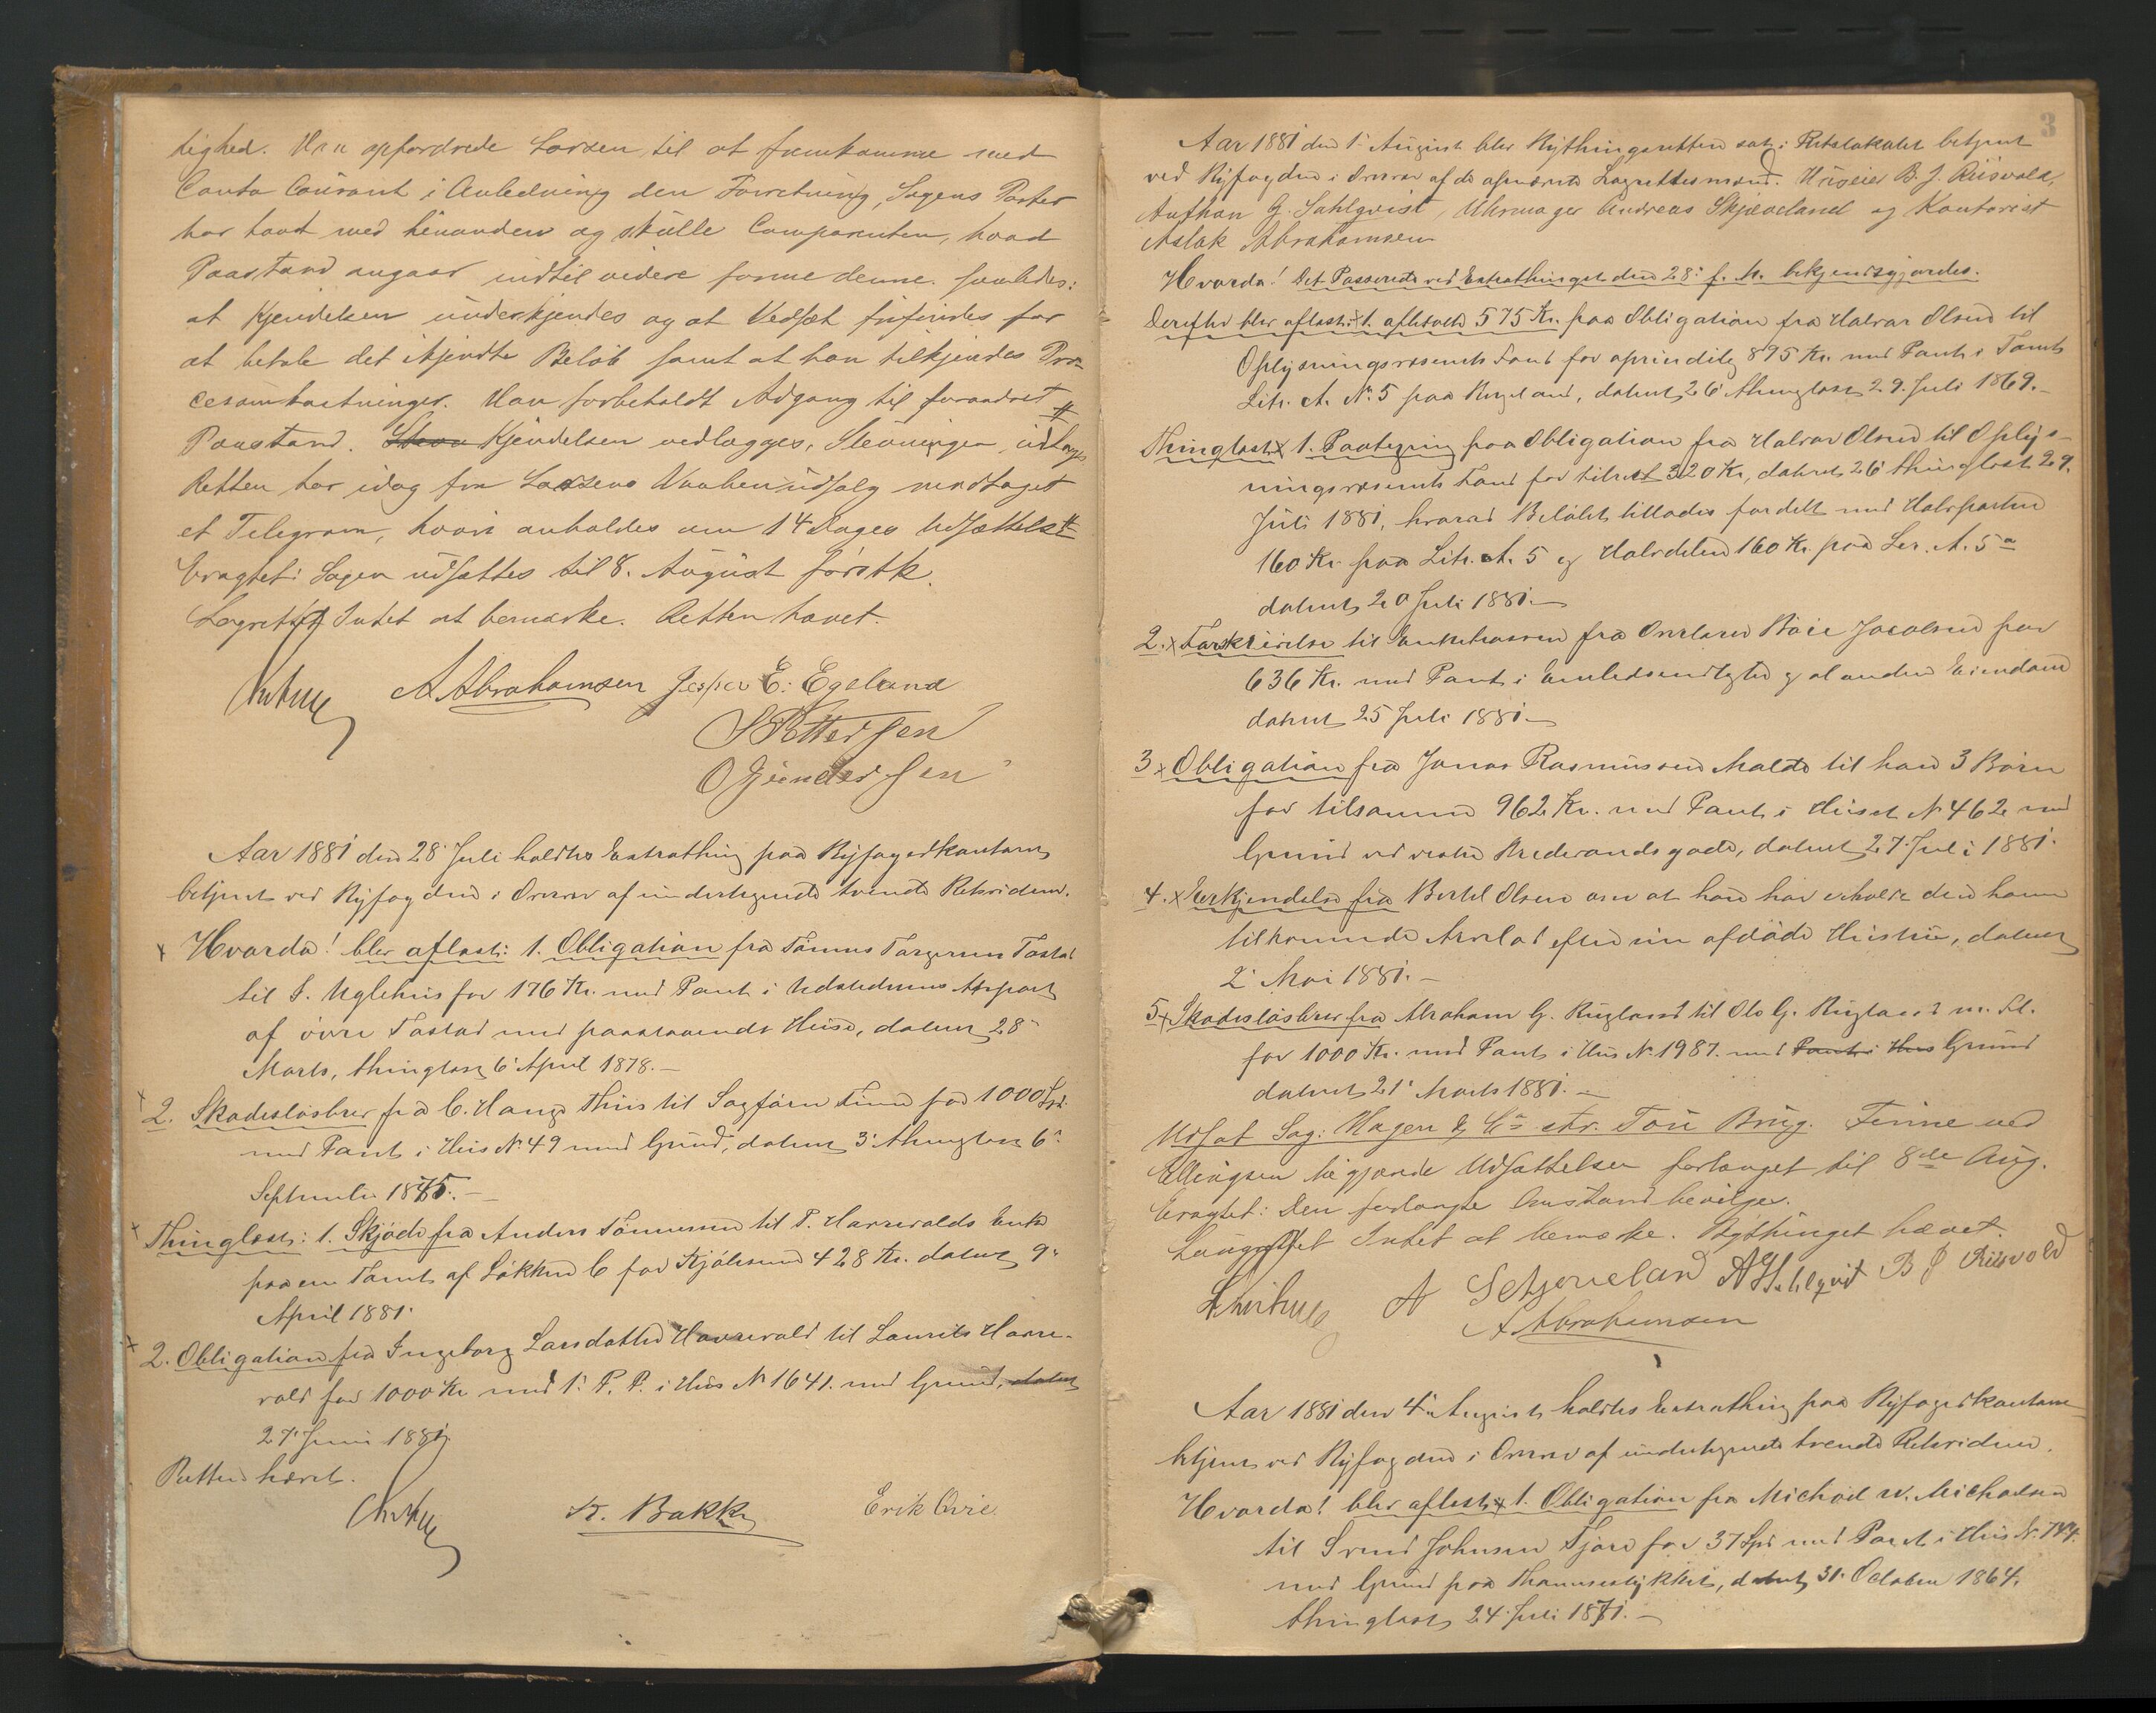 tighed. Han opfordrede Larsen til at fremkomme med
Conto Courant i Anledning den Forretning, Sagens Parter
har havt med hinanden og skulle Comparenten, hvad
Paastand angaar indtil videre forme denne saaledes:
at Kjendelsen underkjendes og at Vedsæt frifindes for
at betale det ikjendte Beløb samt at han tilkjendes Pro-
cesomkostninger. Han forbeholdt Adgang til forandret
Paastand. Kjendelsen vedlægges, Stevningen udtages
Retten har idag fra Larsens Vaabenudsalg modtaget
et Telegram, hvori anholdes om 14 Dages Udsættelse
Eragtet: Sagen udsættes til 8. August førstk.
Lagrettet Intet at bemærke. Retten hævet.
A Abrahamsen Jesper E. Egeland
S Pettersen
O Gundersen
Aar 1881 den 28 Juli holdtes Extrathing paa Byfogedkontoret
betjent ved Byfogden i Overvær af undertegnede tvende Retsvidner.
Hvorda! blev aflæst: 1. Obligation fra Tønnes Torgersen Tastad
til S. Uglehus for 176 Kr. med Pant i Udstederens Anpart
af øvre Tastad med paastaaende Huse, datert 28
Marts, thinglæst 6 April 1878.
2. Skadesløsbrev fra C. Hange Thiis til Sagfører Finne for 1000 Spd.
med Pant i Hus No 49 med Grund, datert 3 thinglæst 6
September 1875.
Thinglæst: 1. Skjøde fra Anders Tønnesen til T. Haavevalds Enke
paa en Tomt af Løkken C for Kjøbesum 428 Kr. datert 9
April 1881.
2. Obligation fra Ingeborg Larsdatter Haavevald til Laurits Haave-
vald for 1000 Kr med 1. P. P. i Hus No 1641. med Grund, datert
27 Juni 1881.
Retten hævet.
K. Bakke Erik Qvie
3
Aar 1881 den 1. August blev Bythingsretten sat i Retslokalet betjent
ved Byfogden i Overvær af de opnævnte Lagrettesmænd. Huseier B. J. Riisvold,
A. G. Sahlqvist, Uhrmager Andreas Skjæveland og Kontorist
Aslak Abrahamsen
Hvorda! Det Passerede ved Extrathinget den 28. f. M. bekjendtgjordes.
Derefter blev aflæst: 1. afbetalt 575 Kr. paa Obligation fra Halvor Olsen til
Oplysningsvæsenets Fond for oprindelig 895 Kr. med Pant i Tomt
Litr. A. No 5 paa Rugland, datert 26 thinglæst 29. Juli 1869.
Thinglæst 1. Paategning paa Obligation fra Halvor Olsen til Oplys-
ningsvæsenets Fond for tilrest 320 Kr, datert 26 thinglæst 29.
Juli 1881, hvorved Beløbet tillades fordelt med Halvparten
160 Kr. paa Litr. A. 5 og Halvdelen 160 Kr. paa Ltr. A. 5 a
datert 20 Juli 1881.
2. Forskrivelse til Enkekassen fra Overlærer Boie Jacobsen for
636 Kr. med Pant i Embedsindtægter og al anden Eiendom
datert 25 Juli 1881
3 Obligation fra Jonas Rasmussen Malde til hans 3 Børn
for tilsammen 962 Kr. med Pant i Huset No 462 med
Grund ved vestre Brederaadsgade, datert 27 Juli 1881.
4. Erkjendelse fra Bertel Olsen om at han har erholdt den ham
tilkommende Arvelod efter sin afdøde Hustru, datert
2 Mai 1881.
5. Skadesløsbrev fra Abraham G. Rugland til Ole G. Rugland m. fl.
for 1000 Kr. med Pant i Hus No 1987. med Pant i Hus Grund
datert 21 Marts 1881.
Udsat Sag: Hagen & Co ctr. Tou Brug. Finne ved
Ellingsen begjærede Udsættelsen forlænget til 8de Aug.
Eragtet: Den forlangte Anstand bevilges.
Laugrettet Intet at bemærke. Bythinget hævet.
A Skjæveland A G Sahlqvist B J Riisvold
A Abrahamsen
Aar 1881 den 4 August holdtes Extrathing paa Byfogedkontoret
betjent ved Byfogden i Overvær af undertegnede tvende Retsvidner.
Hvorda! blev aflæst 1. Obligation fra Michael W. Michelsen
til Svend Johnsen Fjære for 37 Spd med Pant i Hus No 744.
med Grund paa Thommesstykket, datert 31. October 1864.
thinglæst 24 Juli 1871.